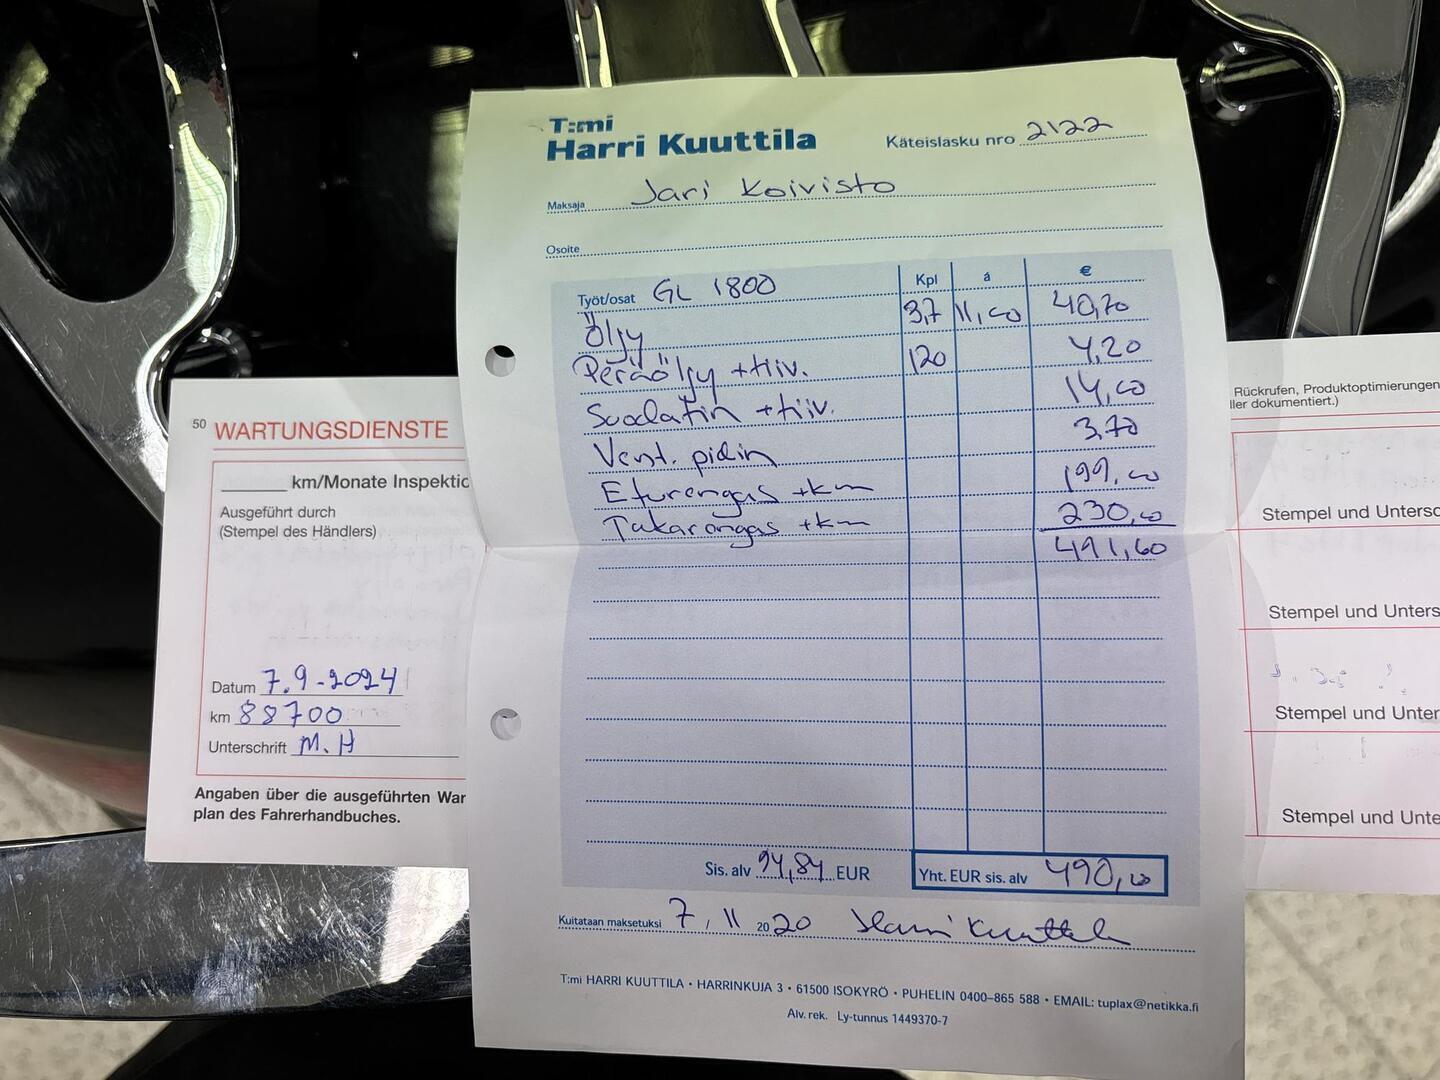 T:mi
Harri Kuuttila
Käteislasku nro 2122
Maksaja Jari Koivisto
Osoite
Työt/osat GL 1800 Kpl á €
Öljy 3,7 11,00 40,70
Peräöljy +tiiv. 120 4,20
Suodatin +tiiv. 14,00
Vent. pidin 3,70
Eturengas +km 199,00
Takarengas +km 230,00
491,60
Sis. alv 94,84 EUR Yht. EUR sis. alv 490,00
Kuitataan maksetuksi 7,11 2020 Harri Kuuttila
T:mi HARRI KUUTTILA • HARRINKUJA 3 • 61500 ISOKYRÖ • PUHELIN 0400–865 588 • EMAIL: tuplax@netikka.fi
Alv. rek. Ly-tunnus 1449370-7
50 WARTUNGSDIENSTE
km/Monate Inspektio
Ausgeführt durch
(Stempel des Händlers)
Datum 7.9-2024
km 88700
Unterschrift M.H
Angaben über die ausgeführten War
plan des Fahrerhandbuches.
Rückrufen, Produktoptimierungen
ller dokumentiert.)
Stempel und Untersc
Stempel und Unters
Stempel und Unter
Stempel und Unte